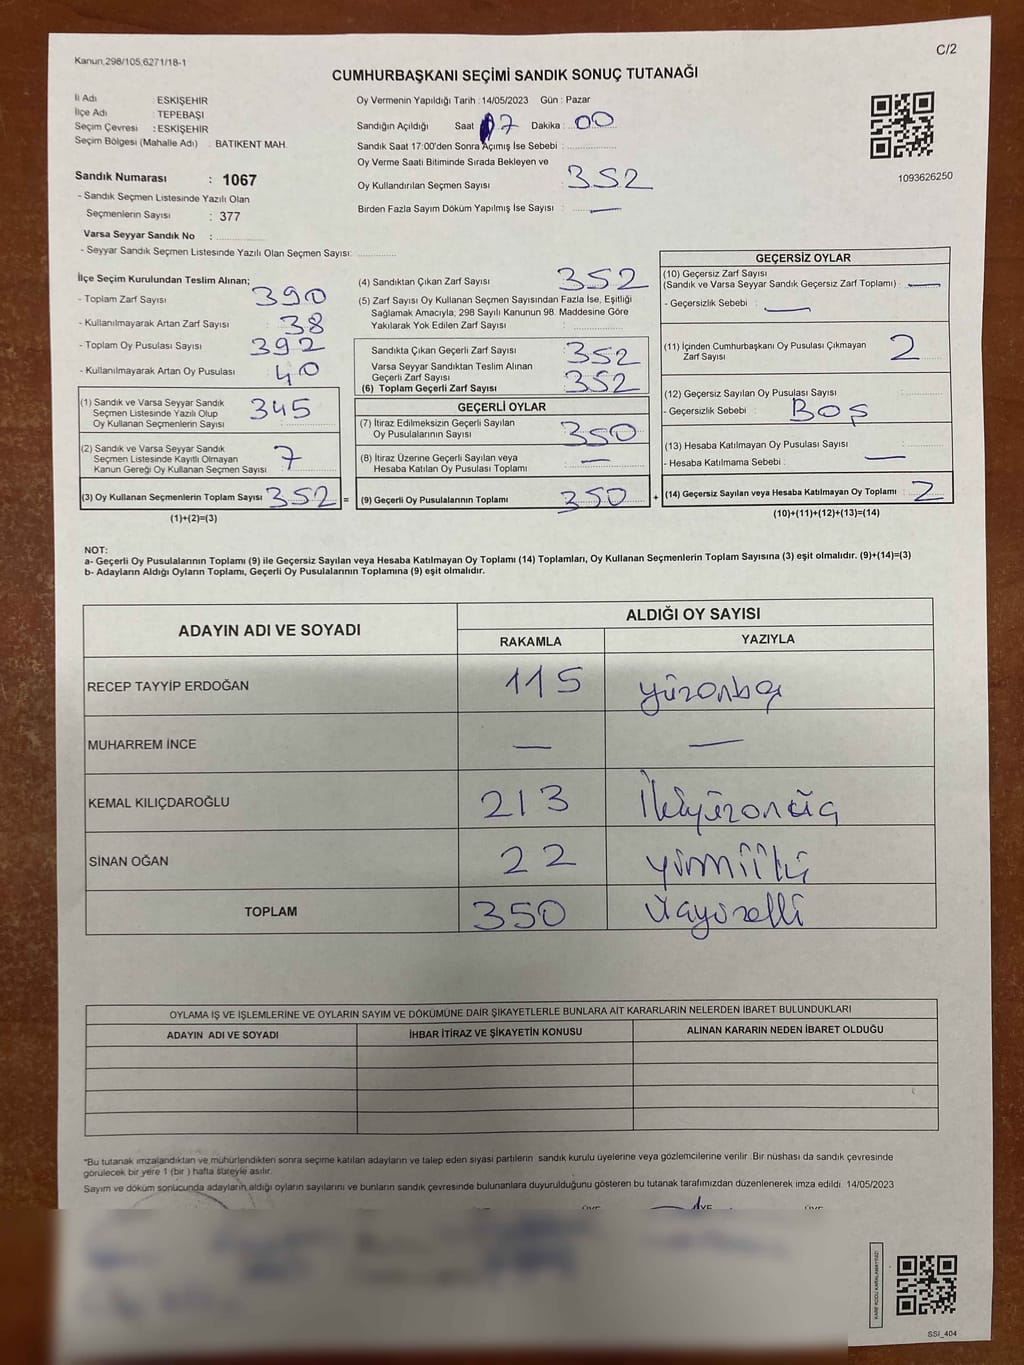 C/2
Kanun,298/105,6271/18-1
CUMHURBAŞKANI SEÇİMİ SANDIK SONUÇ TUTANAĞI
İl Adı : ESKİŞEHİR
İlçe Adı : TEPEBAŞI
Seçim Çevresi : ESKİŞEHİR
Seçim Bölgesi (Mahalle Adı) : BATIKENT MAH.
Sandık Numarası : 1067
- Sandık Seçmen Listesinde Yazılı Olan
Seçmenlerin Sayısı : 377
Varsa Seyyar Sandık No :
- Seyyar Sandık Seçmen Listesinde Yazılı Olan Seçmen Sayısı:
Oy Vermenin Yapıldığı Tarih : 14/05/2023 Gün : Pazar
Sandığın Açıldığı Saat 7 Dakika : 00
Sandık Saat 17:00'den Sonra Açımış İse Sebebi :
Oy Verme Saati Bitiminde Sırada Bekleyen ve
Oy Kullandırılan Seçmen Sayısı : 352
Birden Fazla Sayım Döküm Yapılmış İse Sayısı : —
1093626250
İlçe Seçim Kurulundan Teslim Alınan;
- Toplam Zarf Sayısı : 390
- Kullanılmayarak Artan Zarf Sayısı : 38
- Toplam Oy Pusulası Sayısı : 392
- Kullanılmayarak Artan Oy Pusulası : 40
(1) Sandık ve Varsa Seyyar Sandık
Seçmen Listesinde Yazılı Olup
Oy Kullanan Seçmenlerin Sayısı : 345
(2) Sandık ve Varsa Seyyar Sandık
Seçmen Listesinde Kayıtlı Olmayan
Kanun Gereği Oy Kullanan Seçmen Sayısı : 7
(3) Oy Kullanan Seçmenlerin Toplam Sayısı : 352 =
(1)+(2)=(3)
(4) Sandıktan Çıkan Zarf Sayısı : 352
(5) Zarf Sayısı Oy Kullanan Seçmen Sayısından Fazla İse, Eşitliği
Sağlamak Amacıyla; 298 Sayılı Kanunun 98. Maddesine Göre
Yakılarak Yok Edilen Zarf Sayısı :
Sandıkta Çıkan Geçerli Zarf Sayısı : 352
Varsa Seyyar Sandıktan Teslim Alınan
Geçerli Zarf Sayısı
(6) Toplam Geçerli Zarf Sayısı : 352
GEÇERLİ OYLAR
(7) İtiraz Edilmeksizin Geçerli Sayılan
Oy Pusulalarının Sayısı : 350
(8) İtiraz Üzerine Geçerli Sayılan veya
Hesaba Katılan Oy Pusulası Toplamı : —
(9) Geçerli Oy Pusulalarının Toplamı : 350 +
GEÇERSİZ OYLAR
(10) Geçersiz Zarf Sayısı
(Sandık ve Varsa Seyyar Sandık Geçersiz Zarf Toplamı) : —
- Geçersizlik Sebebi : —
(11) İçinden Cumhurbaşkanı Oy Pusulası Çıkmayan
Zarf Sayısı : 2
(12) Geçersiz Sayılan Oy Pusulası Sayısı :
- Geçersizlik Sebebi : BOŞ
(13) Hesaba Katılmayan Oy Pusulası Sayısı :
- Hesaba Katılmama Sebebi : —
(14) Geçersiz Sayılan veya Hesaba Katılmayan Oy Toplamı : 2
(10)+(11)+(12)+(13)=(14)
NOT:
a- Geçerli Oy Pusulalarının Toplamı (9) ile Geçersiz Sayılan veya Hesaba Katılmayan Oy Toplamı (14) Toplamları, Oy Kullanan Seçmenlerin Toplam Sayısına (3) eşit olmalıdır. (9)+(14)=(3)
b- Adayların Aldığı Oyların Toplamı, Geçerli Oy Pusulalarının Toplamına (9) eşit olmalıdır.
ADAYIN ADI VE SOYADI ALDIĞI OY SAYISI
RAKAMLA YAZIYLA
RECEP TAYYİP ERDOĞAN 115 yüzonbeş
MUHARREM İNCE — —
KEMAL KILIÇDAROĞLU 213 İkiyüzonüç
SİNAN OĞAN 22 yirmiiki
TOPLAM 350 üçyüzelli
OYLAMA İŞ VE İŞLEMLERİNE VE OYLARIN SAYIM VE DÖKÜMÜNE DAİR ŞİKAYETLERLE BUNLARA AİT KARARLARIN NELERDEN İBARET BULUNDUKLARI
ADAYIN ADI VE SOYADI İHBAR İTİRAZ VE ŞİKAYETİN KONUSU ALINAN KARARIN NEDEN İBARET OLDUĞU
*Bu tutanak imzalandıktan ve mühürlendikten sonra seçime katılan adayların ve talep eden siyasi partilerin sandık kurulu üyelerine veya gözlemcilerine verilir. Bir nüshası da sandık çevresinde
görülecek bir yere 1 (bir ) hafta süreyle asılır.
Sayım ve döküm sonucunda adayların aldığı oyların sayılarını ve bunların sandık çevresinde bulunanlara duyurulduğunu gösteren bu tutanak tarafımızdan düzenlenerek imza edildi. 14/05/2023
KARE KODU KARALAMAYINIZ!
SSİ_404